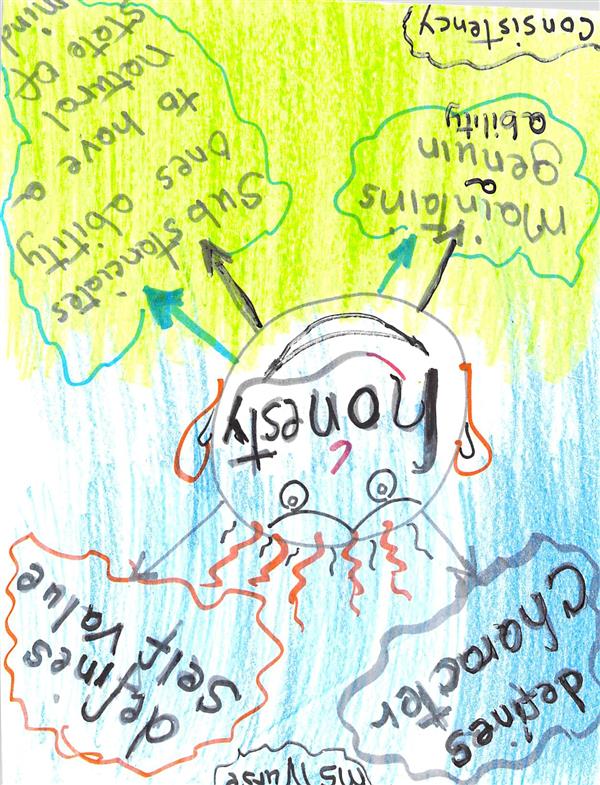 Ms Nurse
defines
character
defines
self value
honesty
maintains
a
genuin
ability
Consistency
Substanciates
ones ability
to have a
natural
state of
mind